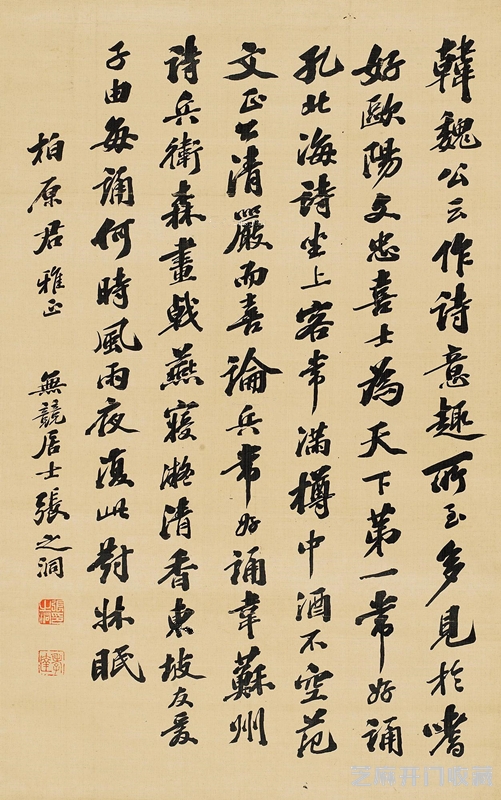 韓魏公云作詩意趣所至多見於嗜
好歐陽文忠喜士為天下第一常好誦
孔北海詩坐上客常滿樽中酒不空范
文正公清嚴而喜論兵常好誦韋蘇州
詩兵衛森畫戟燕寢凝清香東坡友愛
子由每誦何時風雨夜復此對牀眠
柏原君雅正 無競居士張之洞
芝麻开门收藏